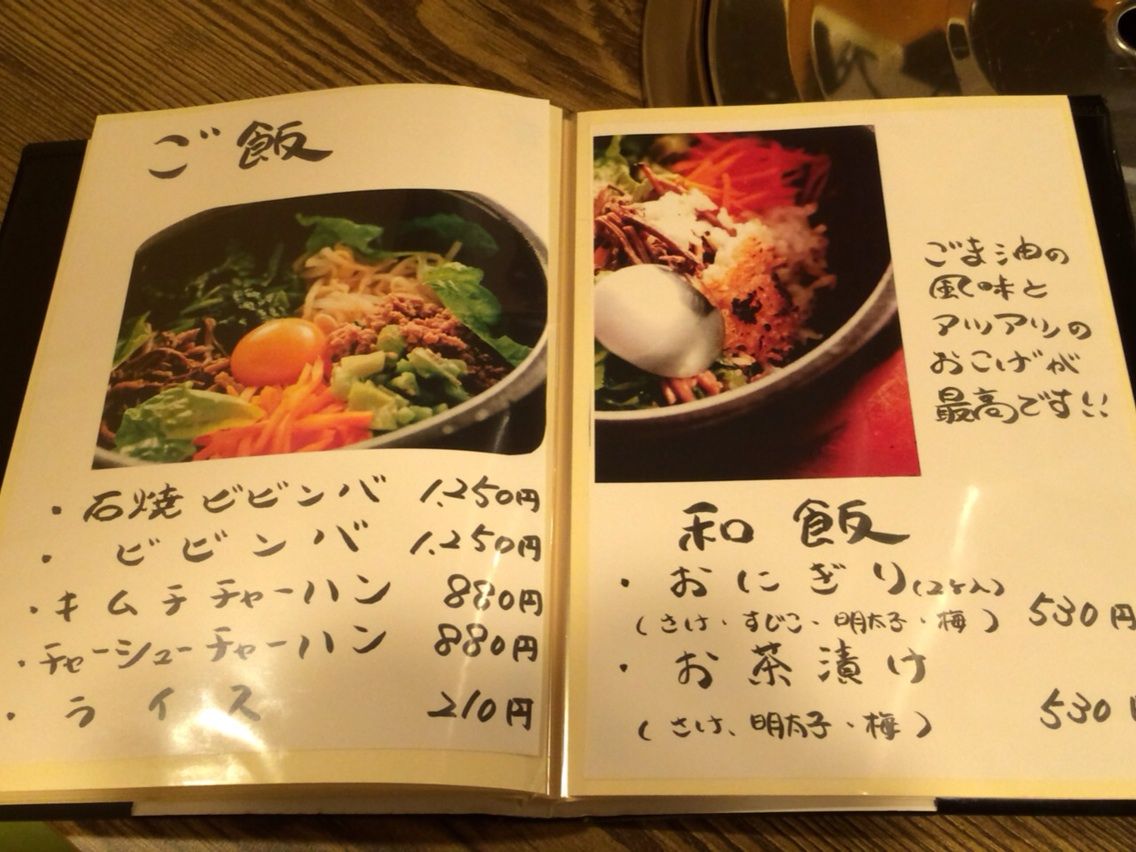 ご飯
・石焼ビビンバ 1,250円
・ビビンバ 1,250円
・キムチチャーハン 880円
・チャーシューチャーハン 880円
・ライス 210円
ごま油の
風味と
アツアツの
おこげが
最高です!!
和飯
・おにぎり(2ヶ入) 530円
(さけ・すじこ・明太子・梅)
・お茶漬け
(さけ、明太子・梅) 530